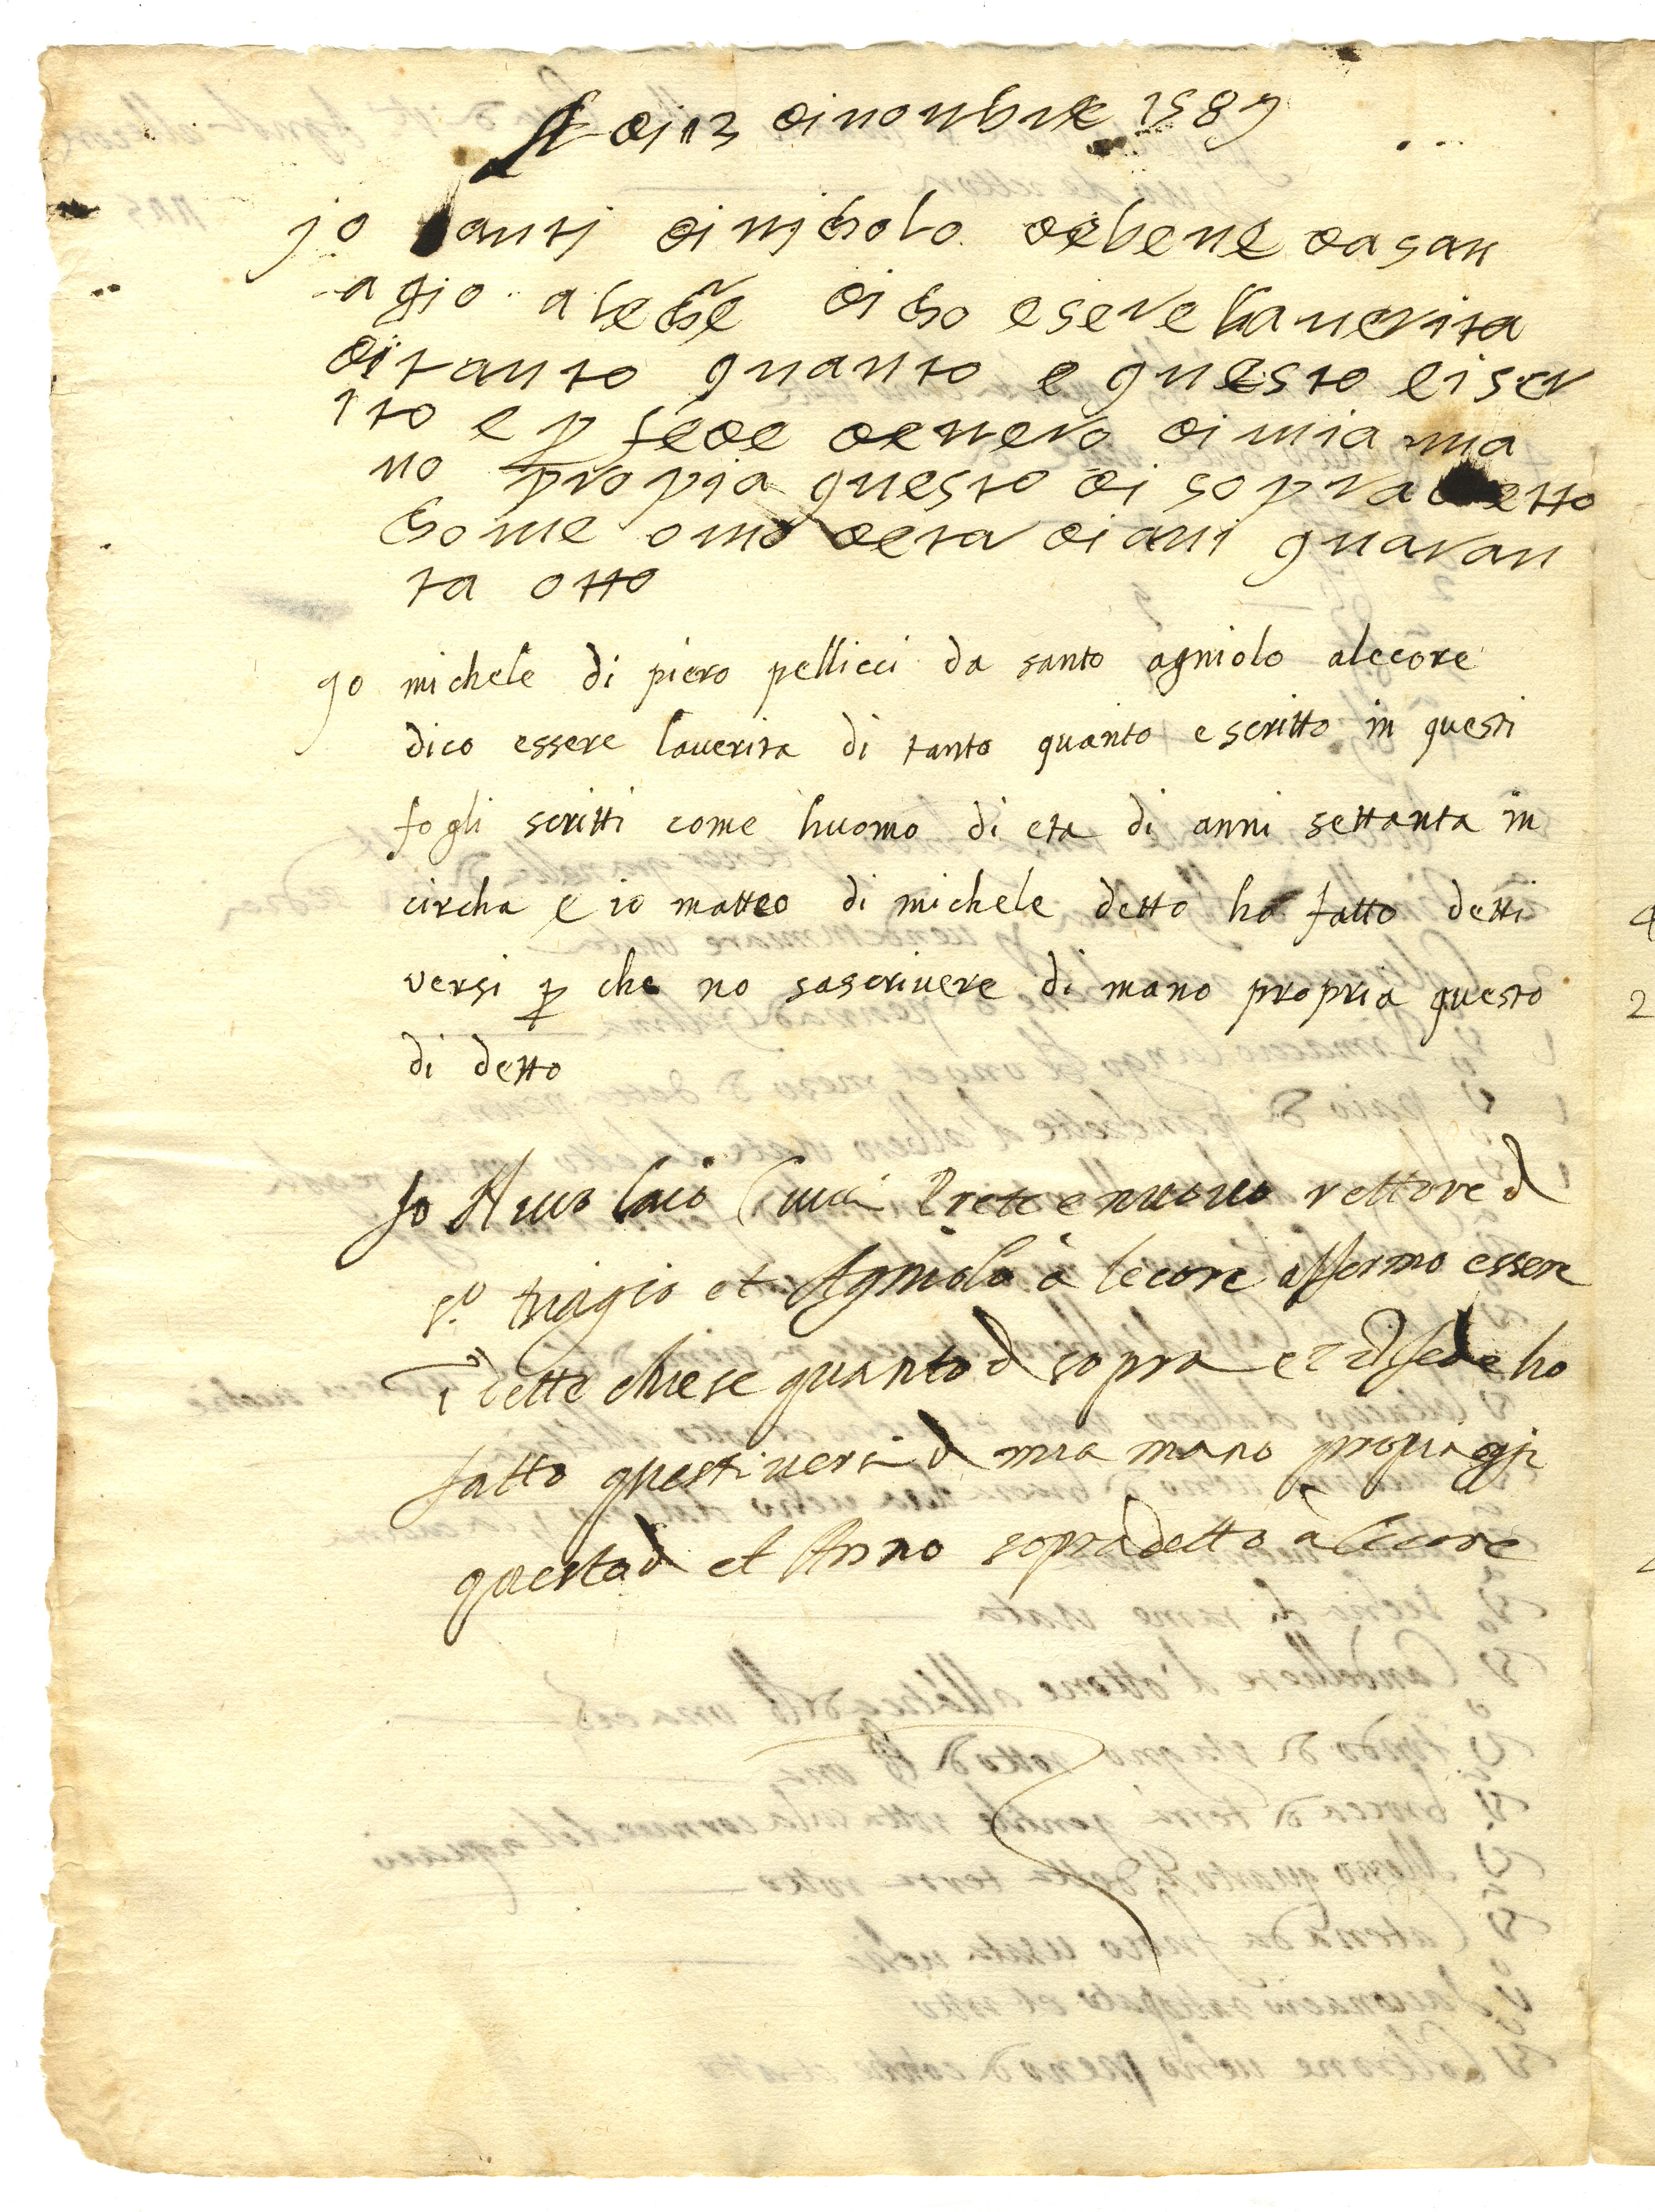 A di 13 di nonbre 1589
jo santi di nicholo del bene da san
agio a lechore dicho esere la verita
di tanto quanto e questo e iscr
ito e p fede de vero di mia ma
no propia questo di sopra detto
chome omo deta di ani quaran
ta otto
Jo michele di piero pellicci da santo agniolo alecore
dico essere laverita di tanto quanto e scritto in questi
fogli scritti come huomo di eta di anni settanta in
circha e io matteo di michele detto ho fatto detti
versi p che no sascrivere di mano propria questo
di detto
Jo prete nuovo rettore d
s.o biagio et Agniolo à lecore affermo essere
i dette chiese quanto d sopra et fede ho
fatto questi versi d mia mano propia
questo d et Anno sopradetto à lecore